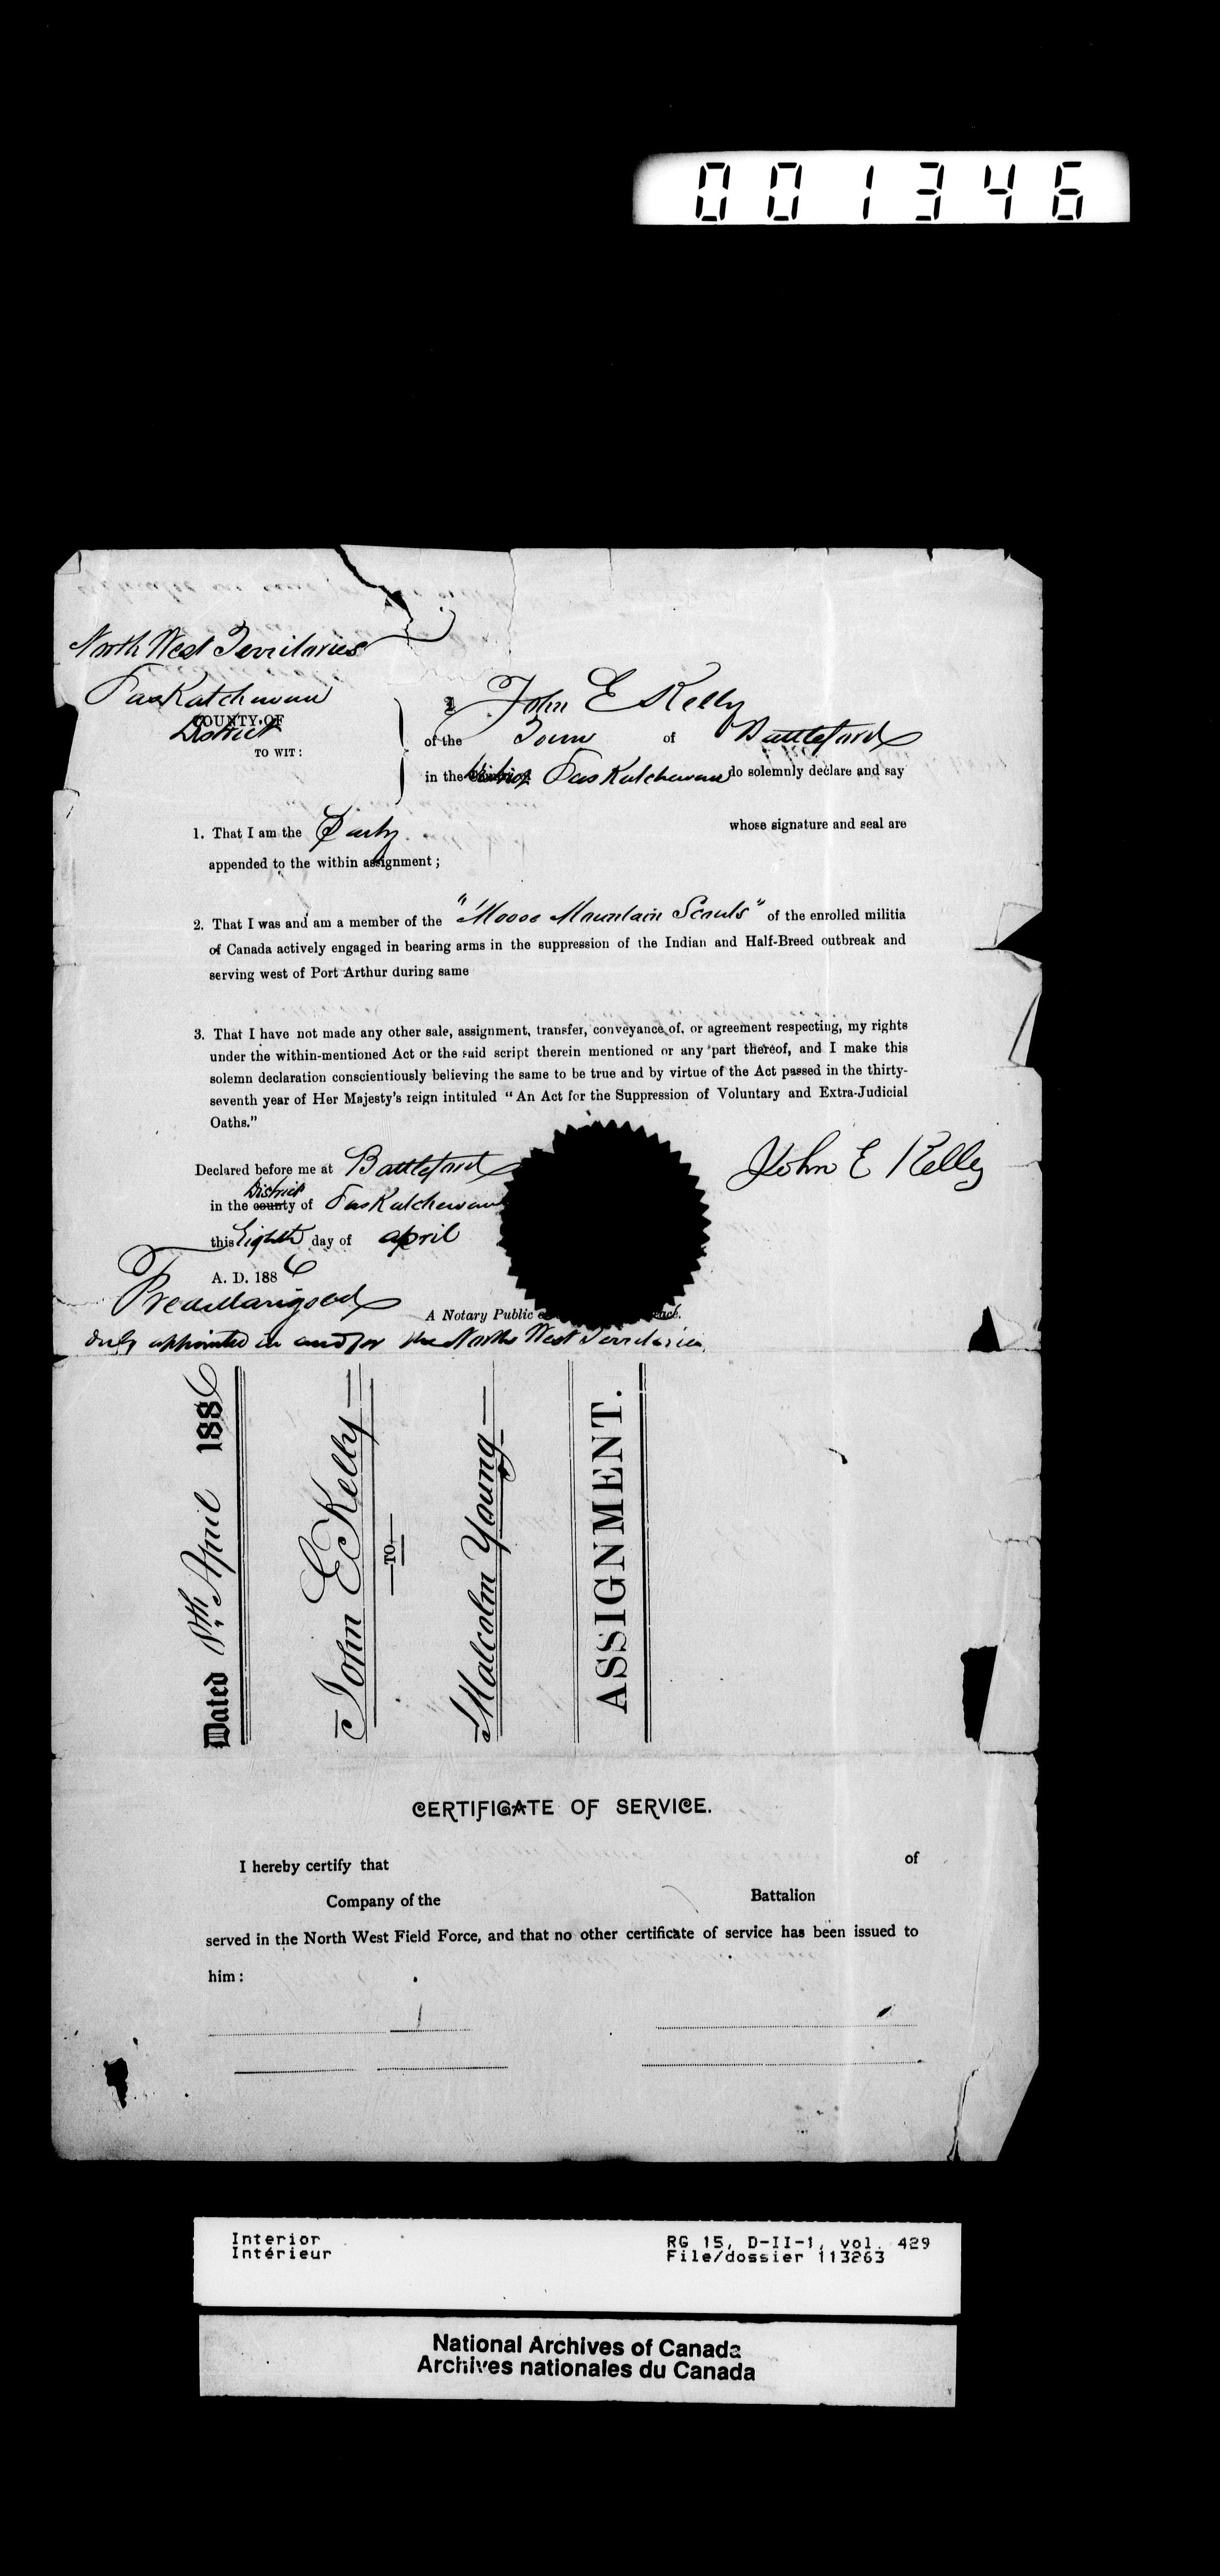 001346
North West Territories
Saskatchewan
COUNTY OF
District
TO WIT:
I John E Kelly
of the Town of Battleford
in the District Saskatchewan do solemnly declare and say
1. That I am the Party whose signature and seal are
appended to the within assignment;
2. That I was and am a member of the "Moose Mountain Scouts" of the enrolled militia
of Canada actively engaged in bearing arms in the suppression of the Indian and Half-Breed outbreak and
serving west of Port Arthur during same
3. That I have not made any other sale, assignment, transfer, conveyance of, or agreement respecting, my rights
under the within-mentioned Act or the said script therein mentioned or any part thereof, and I make this
solemn declaration conscientiously believing the same to be true and by virtue of the Act passed in the thirty-
seventh year of Her Majesty's reign intituled "An Act for the Suppression of Voluntary and Extra-Judicial
Oaths."
Declared before me at Battleford
John E Kelly
District
in the county of Saskatchewan
this Eighth day of April
A. D. 1886
A Notary Public
duly appointed in and for the North West Territories
Dated 8th April 1886
John E Kelly
TO
Malcolm Young
ASSIGNMENT.
CERTIFICATE OF SERVICE.
I hereby certify that of
Company of the Battalion
served in the North West Field Force, and that no other certificate of service has been issued to
him:
Interior RG 15, D-II-1, vol. 429
Intérieur File/dossier 113263
National Archives of Canada
Archives nationales du Canada